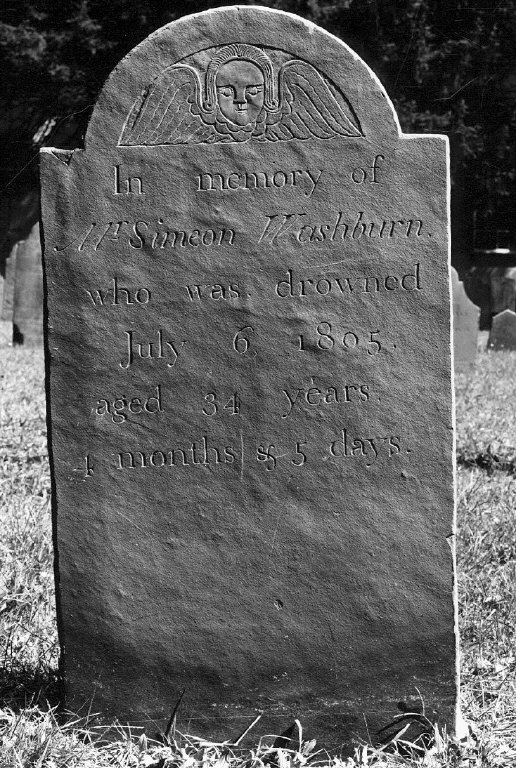 In memory of
Mr Simeon Washburn.
who was drowned
July 6 1805.
aged 34 years.
4 months & 5 days.